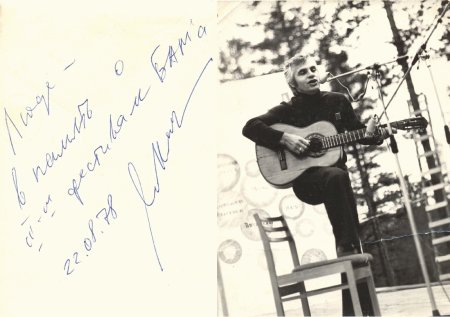 Люде –
в память о
фестивале БАМа
22.08.78